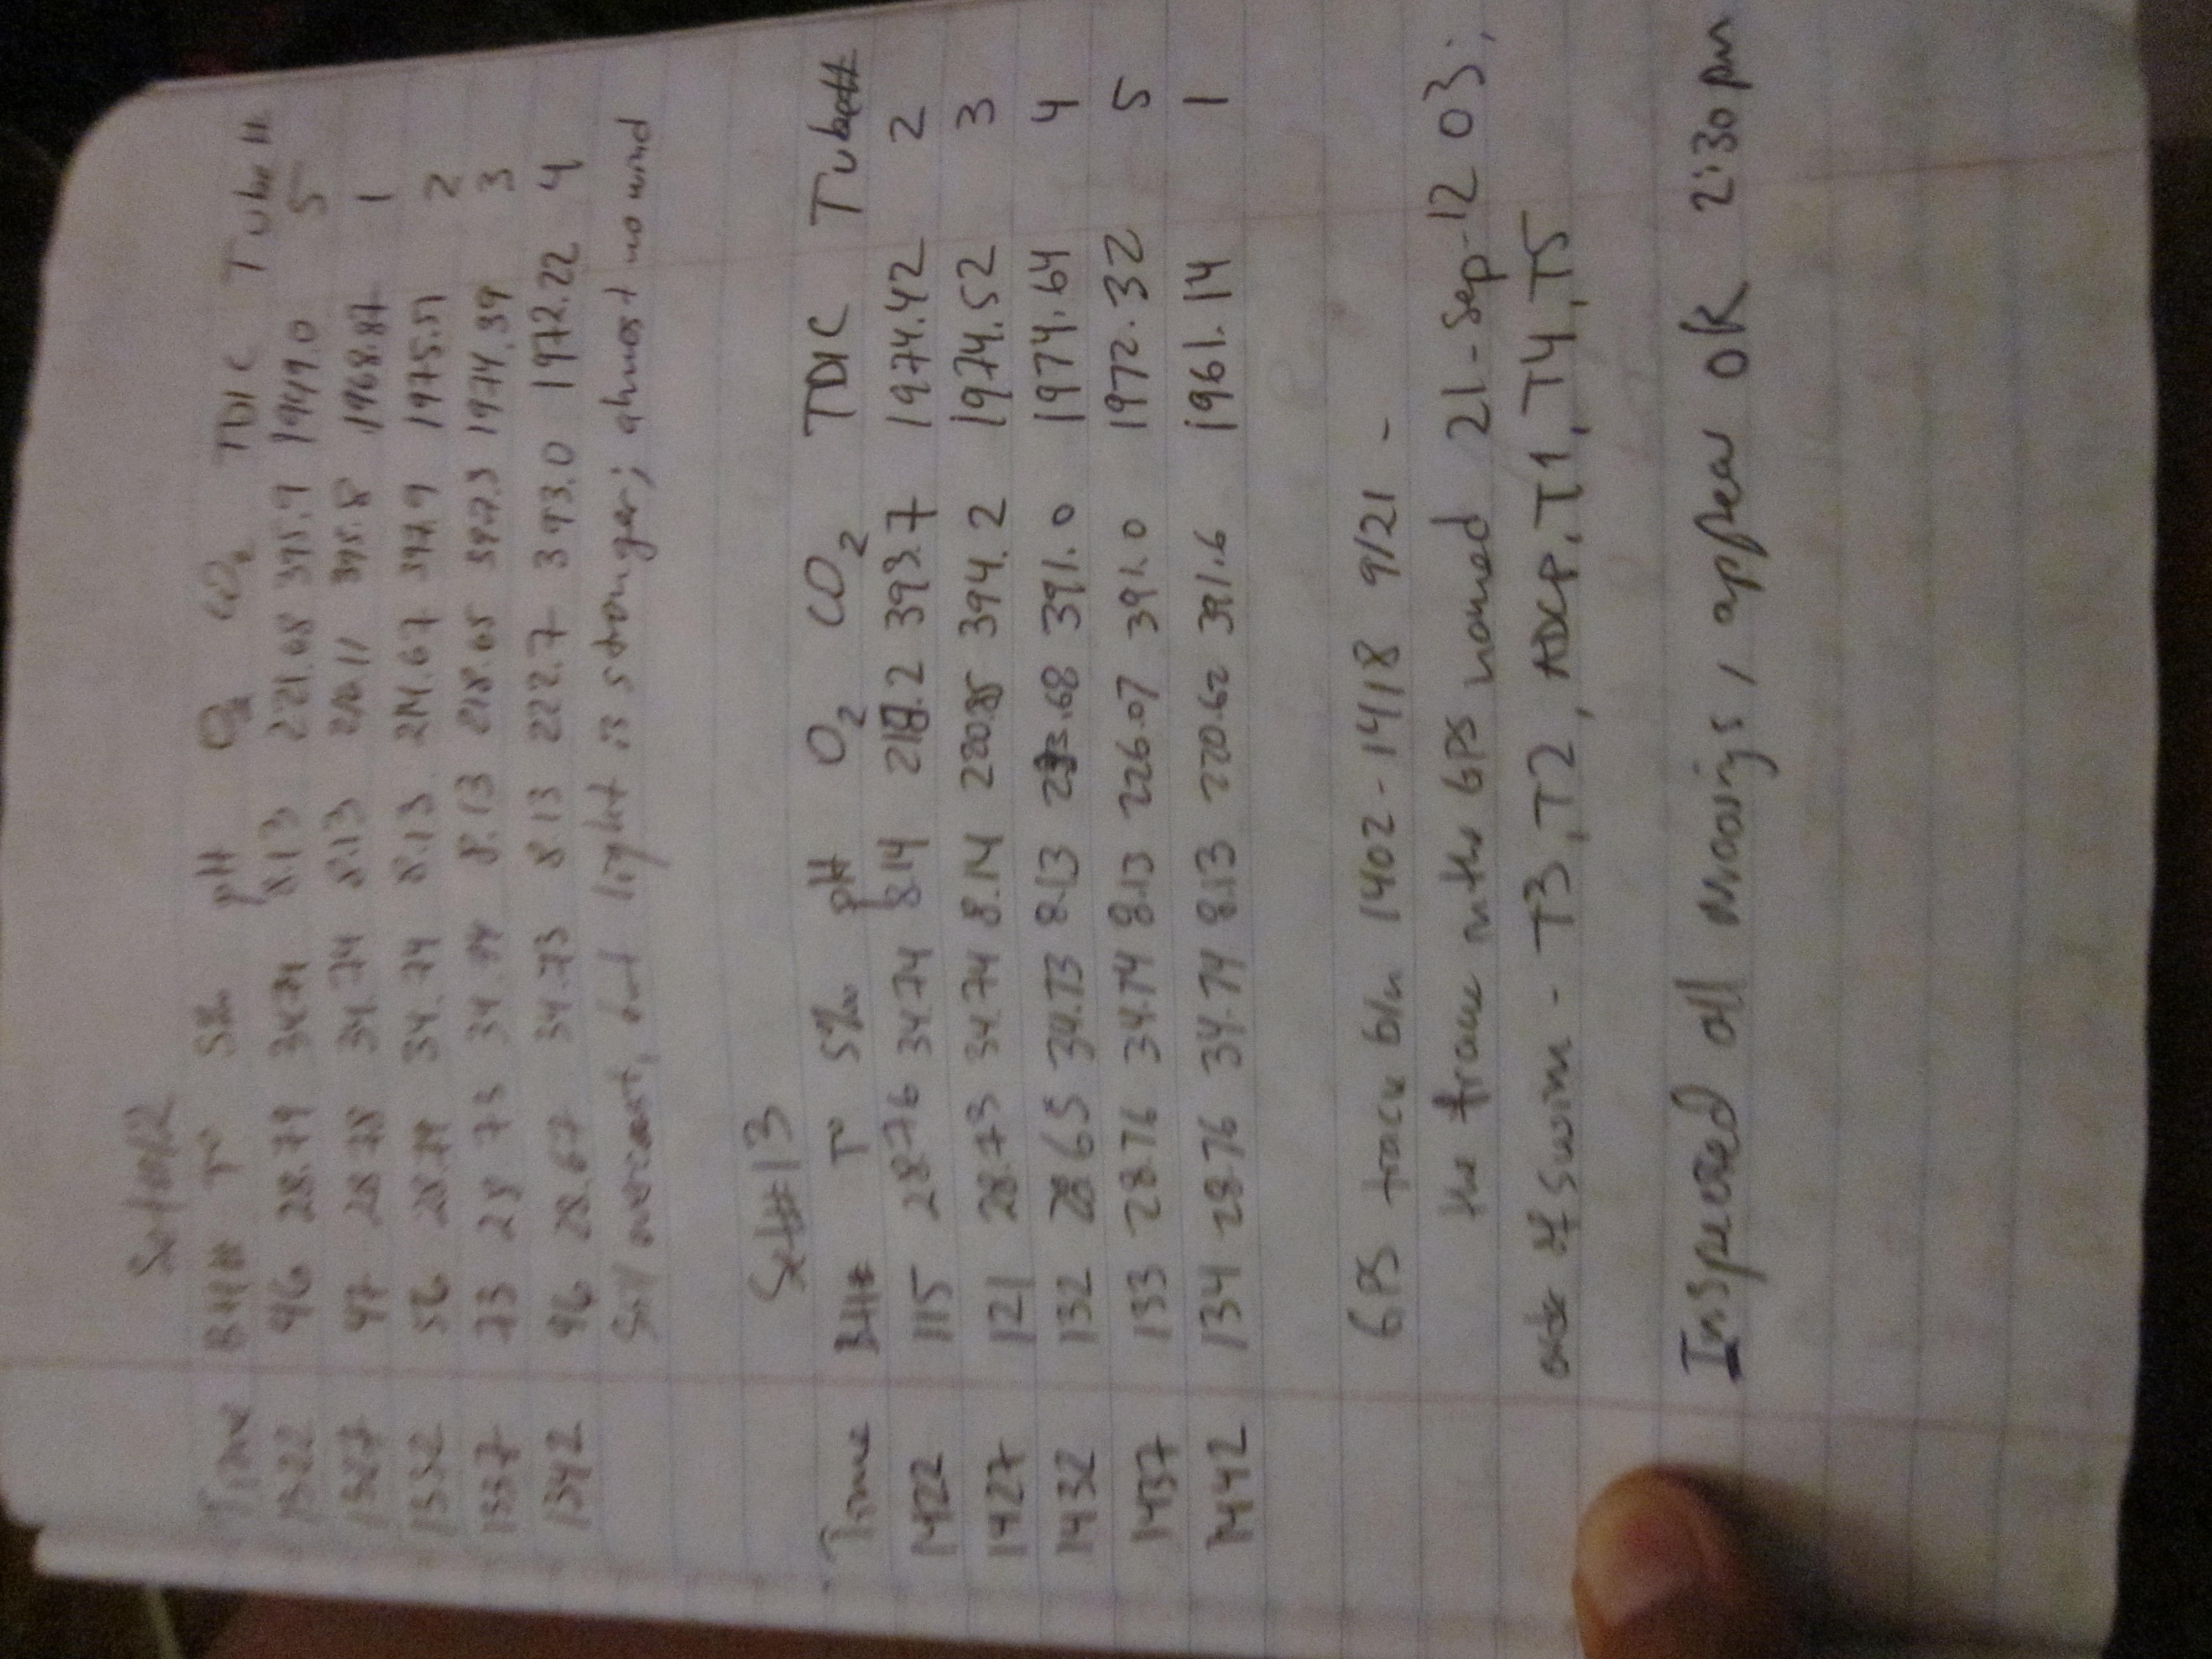 Set#12
Time BH# T° S‰ pH O2 CO2 TDIC Tube #
1322 46 28.79 34.74 8.13 221.08 395.9 1949.0 5
1327 47 28.78 34.74 8.13 395.8 1968.87 1
1332 56 28.79 34.74 8.13 214.67 397.9 1975.51 2
1337 73 28.73 34.74 8.13 218.65 397.3 1974.39 3
1342 96 28.67 34.73 8.13 222.7 393.0 1972.22 4
Still overcast, but light is stronger; almost no wind
Set#13
Time BH# T° S‰ pH O2 CO2 TDIC Tube#
1422 115 28.76 34.74 8.14 218.2 393.7 1974.42 2
1427 121 28.73 34.74 8.14 220.85 394.2 1974.52 3
1432 132 28.65 34.73 8.13 391.0 1974.64 4
1437 133 28.76 34.74 8.13 226.07 391.0 1972.32 5
1442 134 28.76 34.74 8.13 220.62 391.6 1961.14 1
GPS track b/n 1402-1418 9/21 -
the track in the GPS named 21-Sep-12 03;
order of swim - T3, T2, ADCP, T1, T4, T5
Inspected all moorings, appear OK 2:30pm